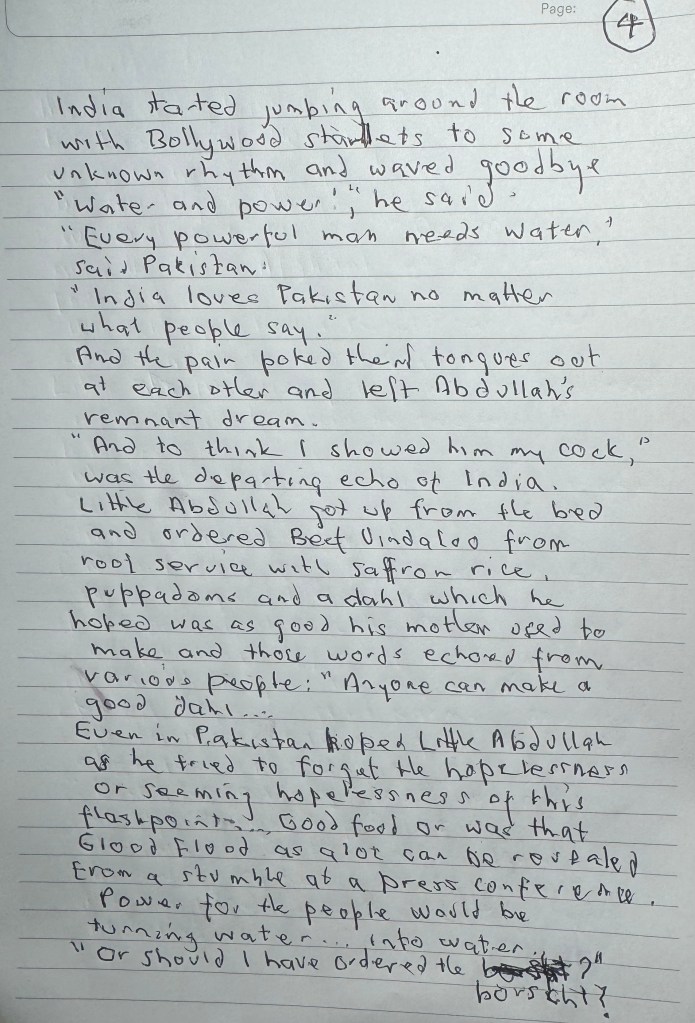 Page:
4
India started jumping around the room
with Bollywood starlets to some
unknown rhythm and waved goodbye
"Water and power!", he said.
"Every powerful man needs water,"
said Pakistan.
"India loves Pakistan no matter
what people say."
And the pair poked their tongues out
at each other and left Abdullah's
remnant dream.
"And to think I showed him my cock,"
was the departing echo of India.
Little Abdullah got up from the bed
and ordered Beef Vindaloo from
roof service with saffron rice,
puppadoms and a dahl which he
hoped was as good his mother used to
make and those words echoed from
various people: "Anyone can make a
good dahl...
Even in Pakistan hoped Little Abdullah
as he tried to forget the hopelessness
or seeming hopelessness of this
flashpoint... Good food or was that
Glood Flood as alot can be revealed
from a stumble at a press conference.
Power for the people would be
turning water... into water.
"Or should I have ordered the ?"
borscht?